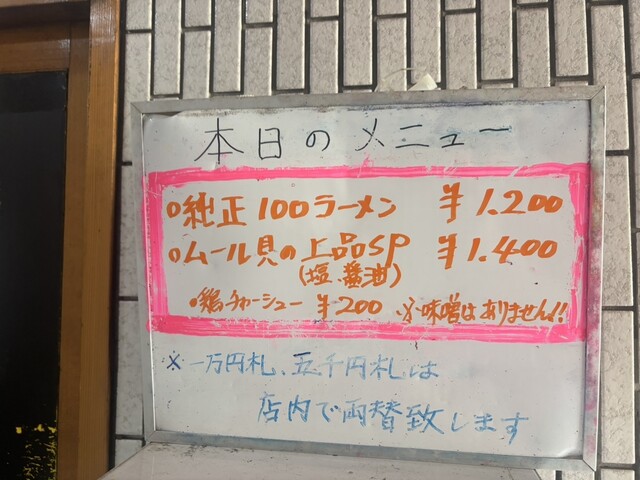 本日のメニュー
○純正100ラーメン ¥1.200
○ムール貝の上品SP ¥1.400
(塩、醤油)
○鶏チャーシュー ¥200 ※味噌はありません!!
※一万円札、五千円札は
店内で両替致します